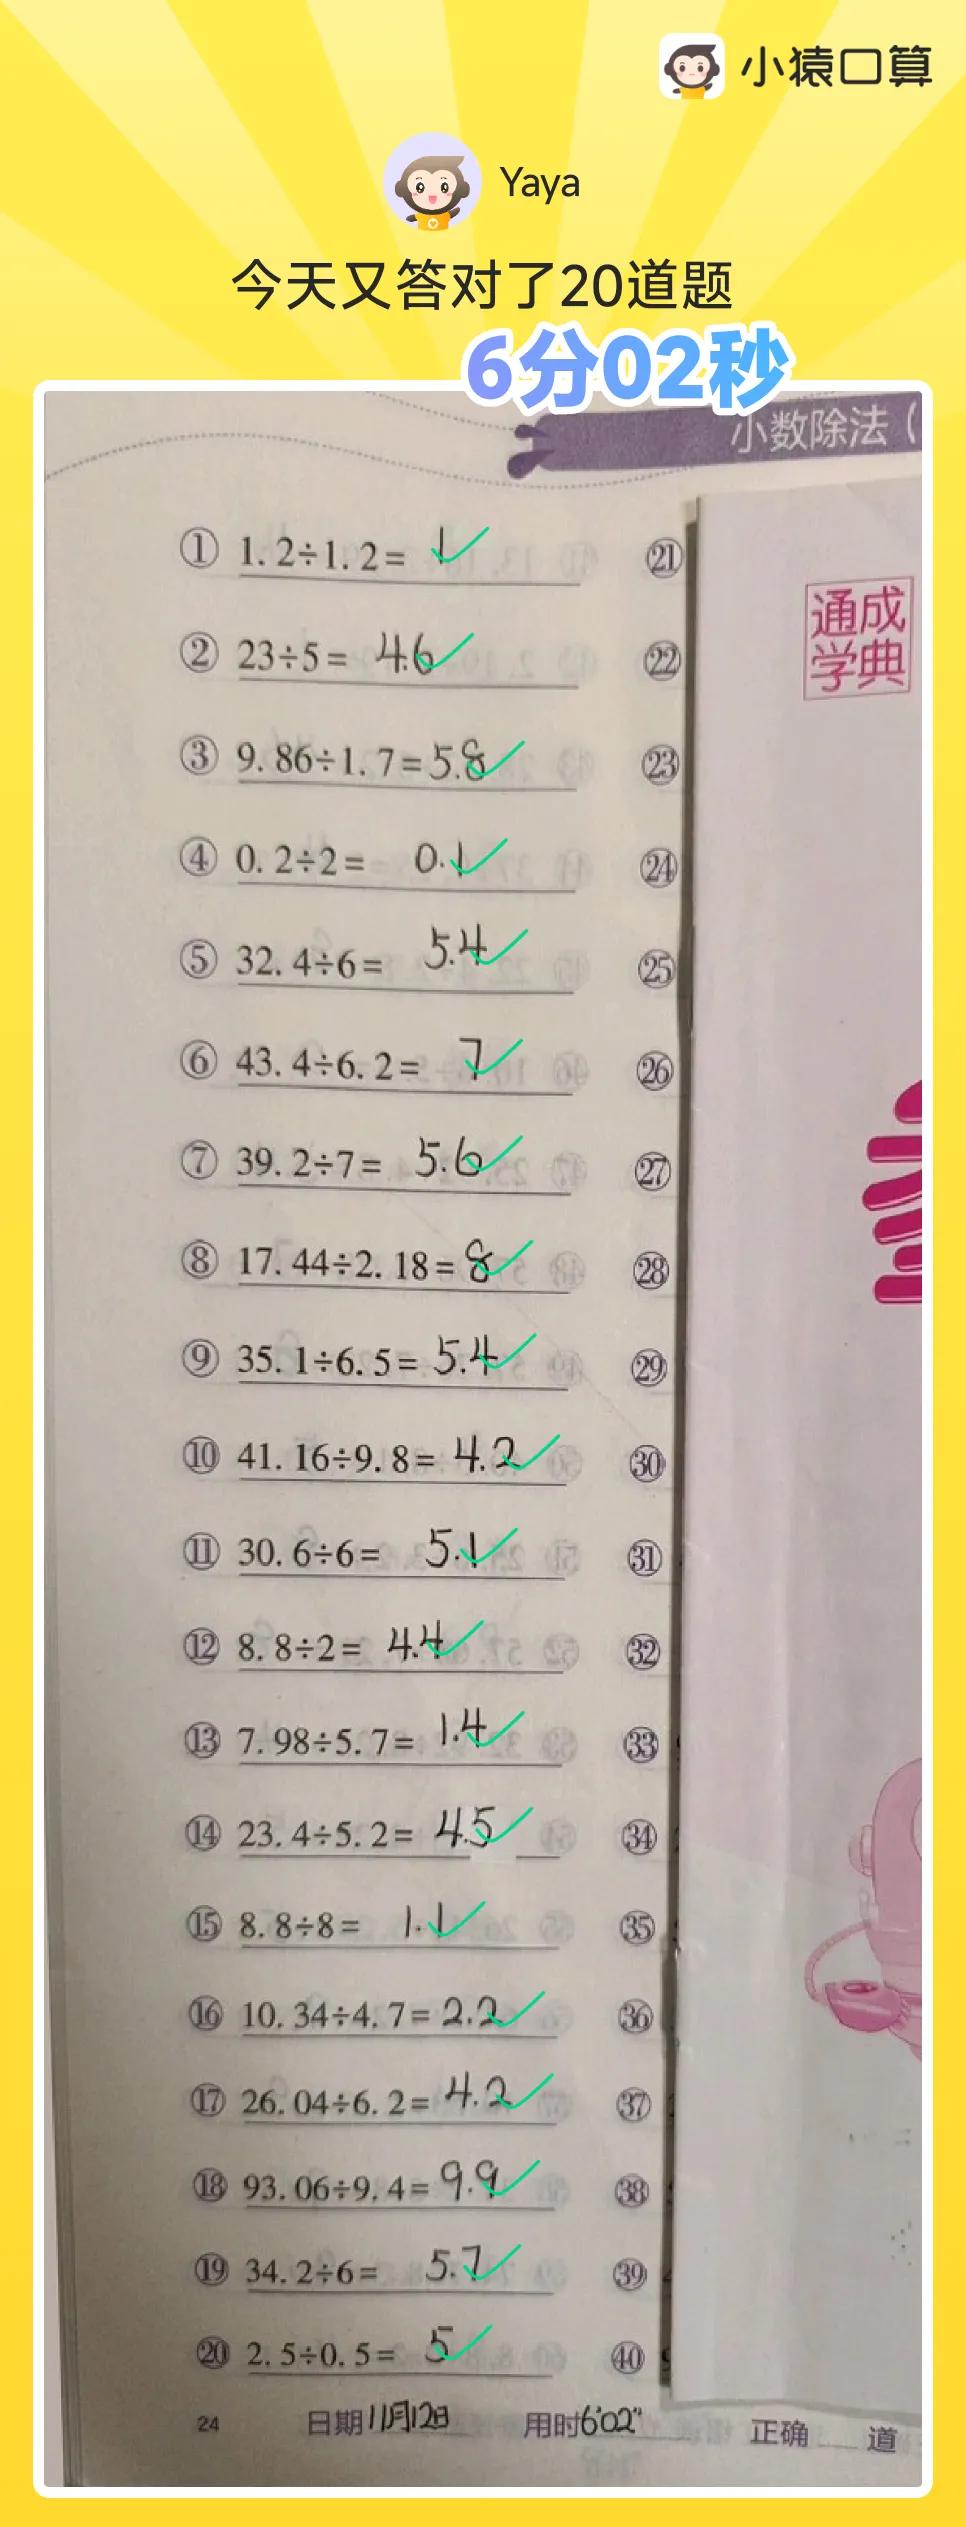 小猿口算
Yaya
今天又答对了20道题
6分02秒
小数除法（
① 1.2÷1.2= 1
② 23÷5= 4.6
③ 9.86÷1.7=5.8
④ 0.2÷2= 0.1
⑤ 32.4÷6= 5.4
⑥ 43.4÷6.2= 7
⑦ 39.2÷7= 5.6
⑧ 17.44÷2.18=8
⑨ 35.1÷6.5=5.4
⑩ 41.16÷9.8=4.2
⑪ 30.6÷6= 5.1
⑫ 8.8÷2= 4.4
⑬ 7.98÷5.7= 1.4
⑭ 23.4÷5.2= 4.5
⑮ 8.8÷8= 1.1
⑯ 10.34÷4.7=2.2
⑰ 26.04÷6.2=4.2
⑱ 93.06÷9.4=9.9
⑲ 34.2÷6= 5.7
⑳ 2.5÷0.5= 5
㉑
㉒
㉓
㉔
㉕
㉖
㉗
㉘
㉙
㉚
㉛
㉜
㉝
㉞
㉟
㊱
㊲
㊳
㊴
㊵
通成
学典
24 日期11月12日 用时6'02" 正确 道